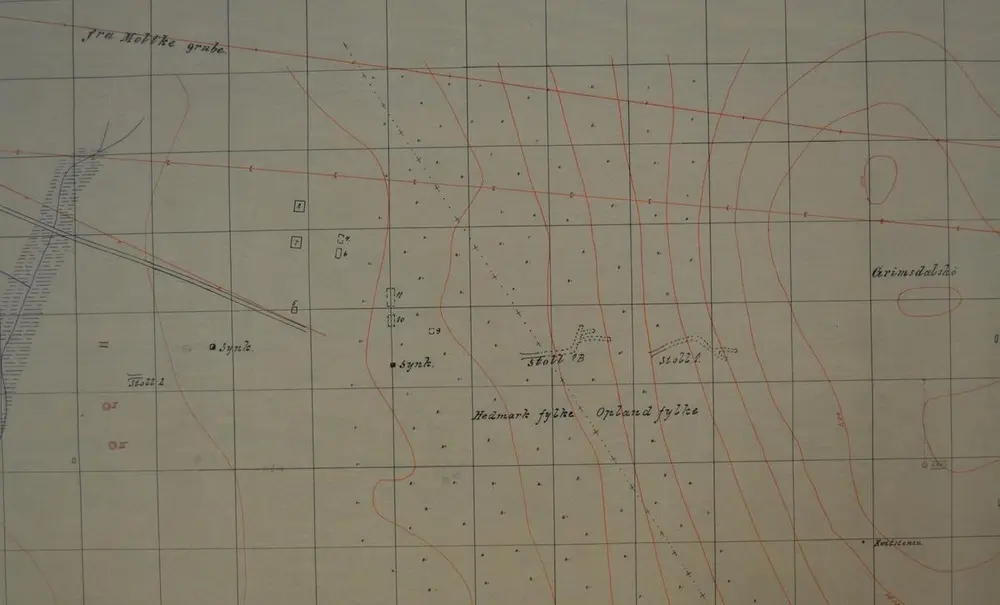 fra Moltke grube
7
9
11
10
Grimsdalshö
synk.
synk.
stoll 1B
stoll 1.
stoll 2
Hedmark fylke
Opland fylke